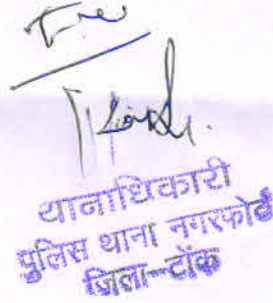 थानाधिकारी
पुलिस थाना नगरफोर्ट
जिला-टोंक